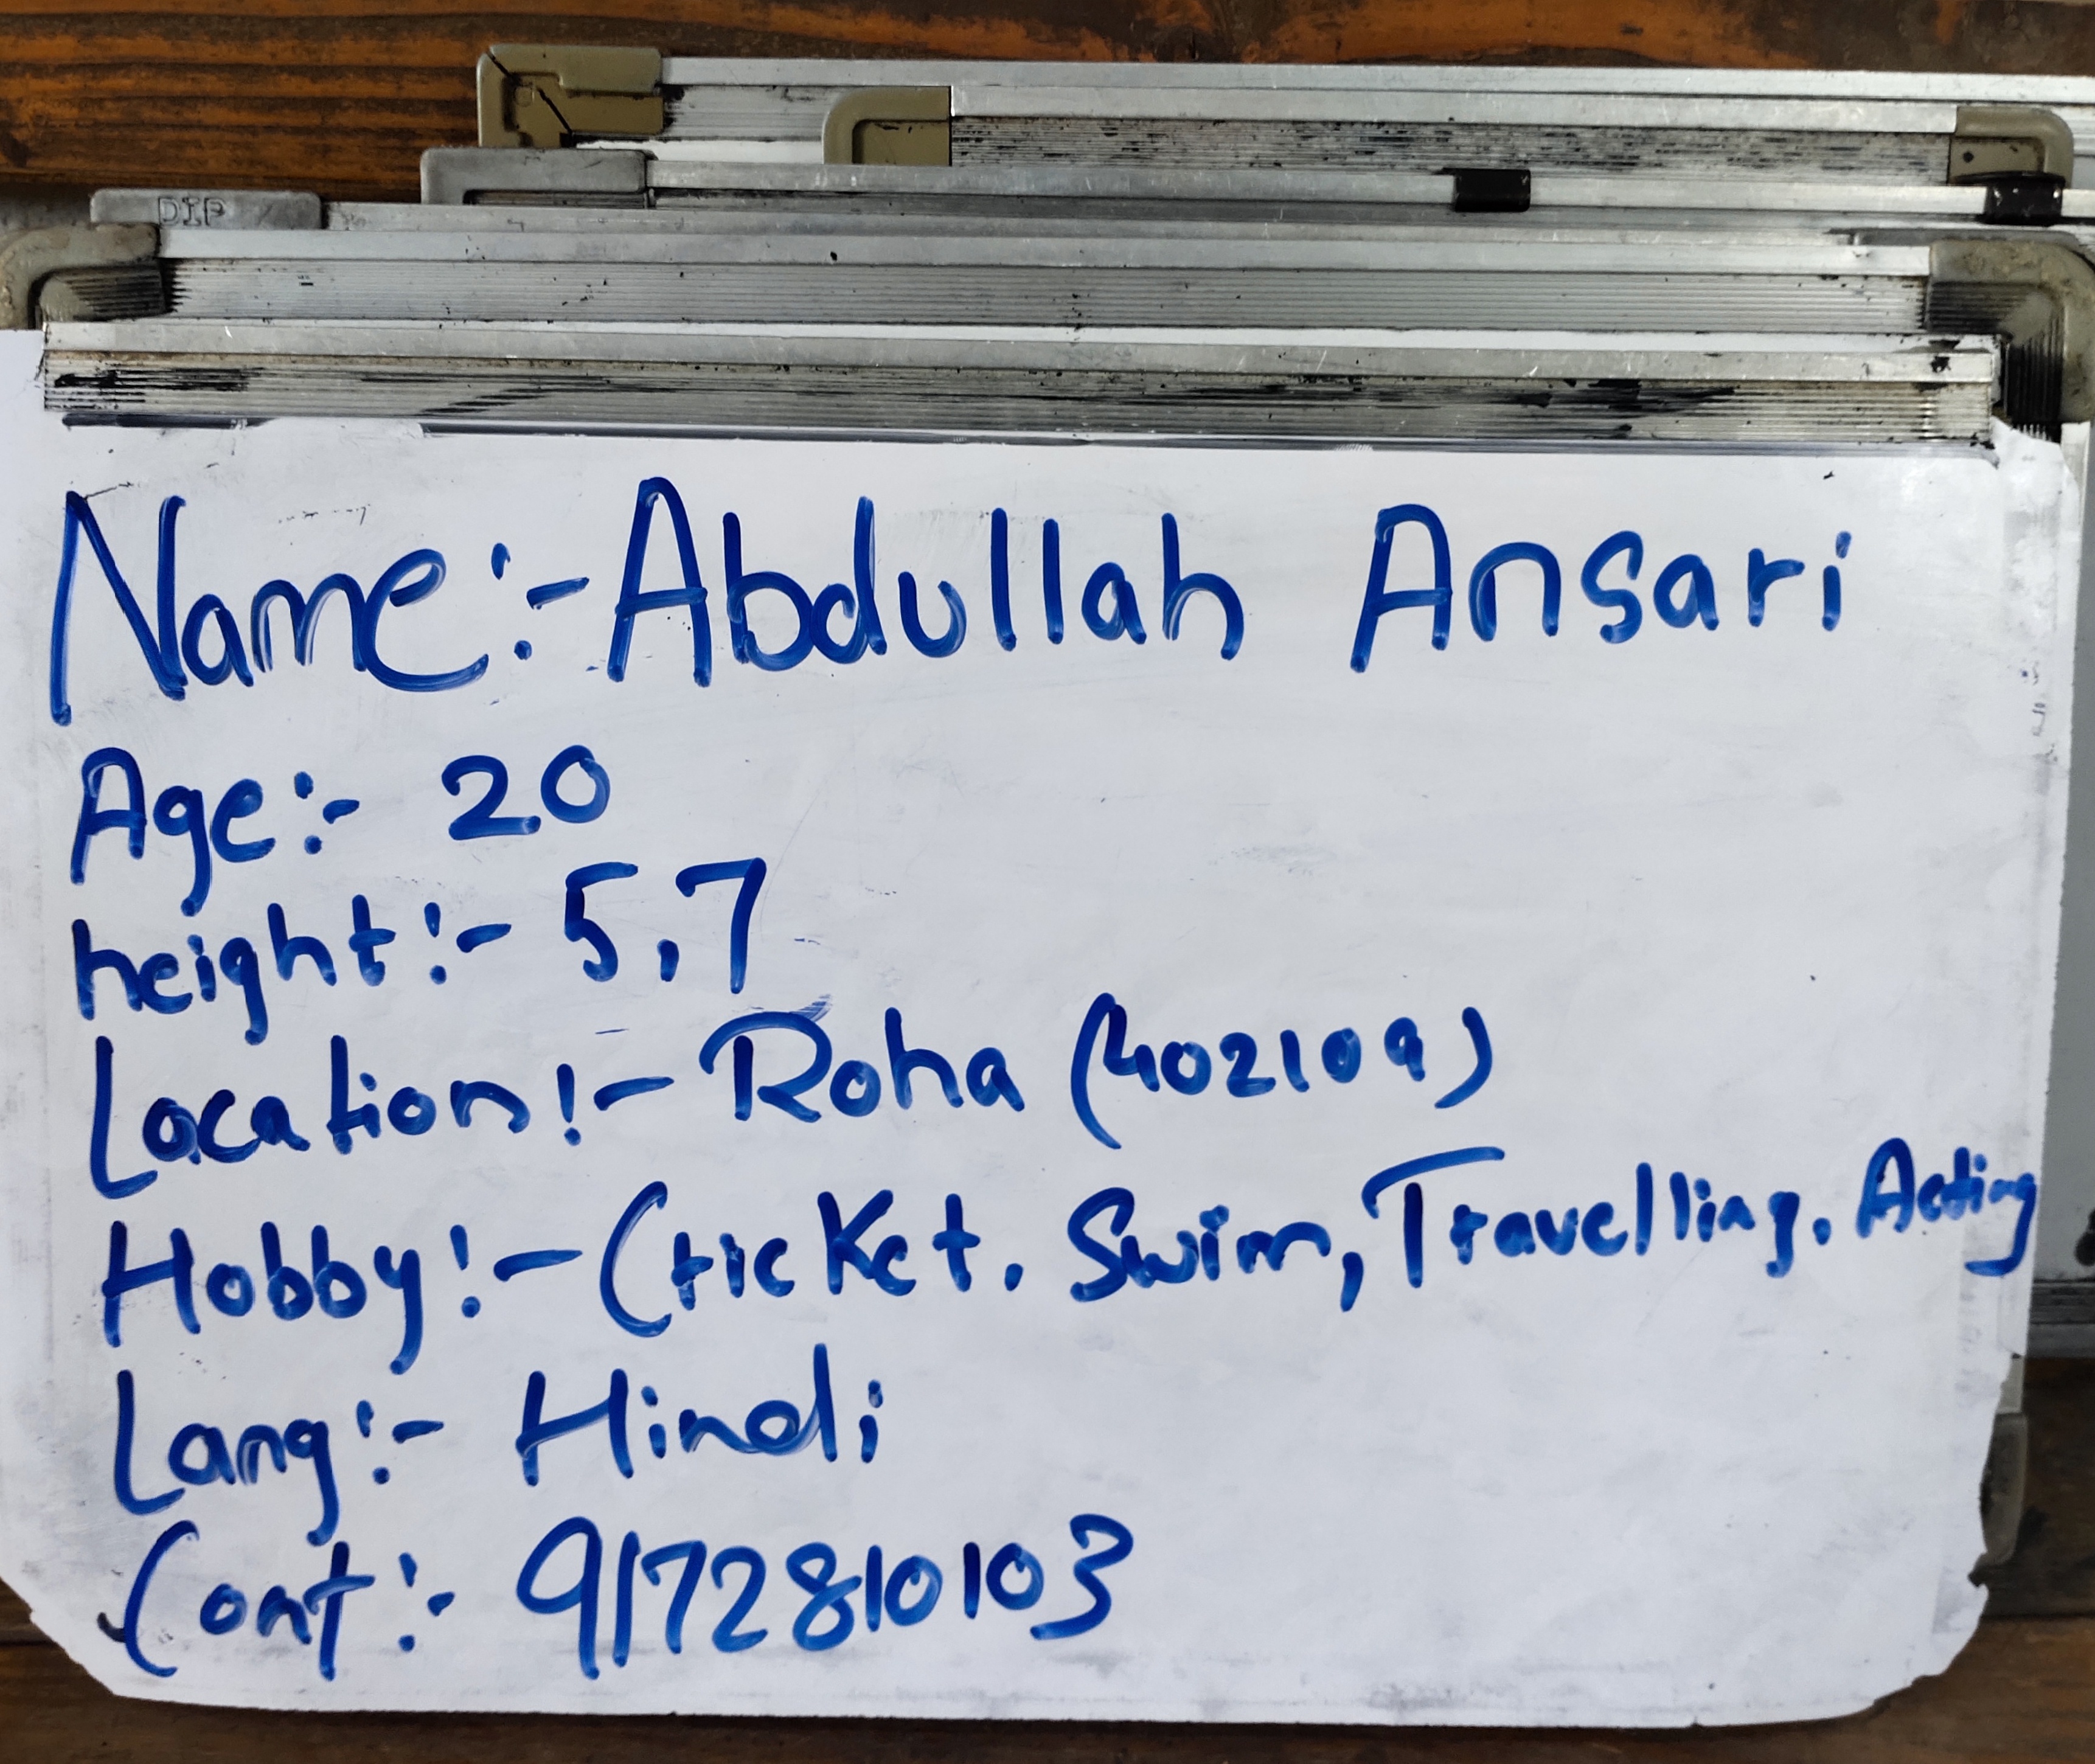 DIP
Name:- Abdullah Ansari
Age:- 20
height:- 5,7
Location:- Roha (402109)
Hobby:- Cricket, Swim, Travelling, Acting
Lang:- Hindi
Cont:- 9172810103